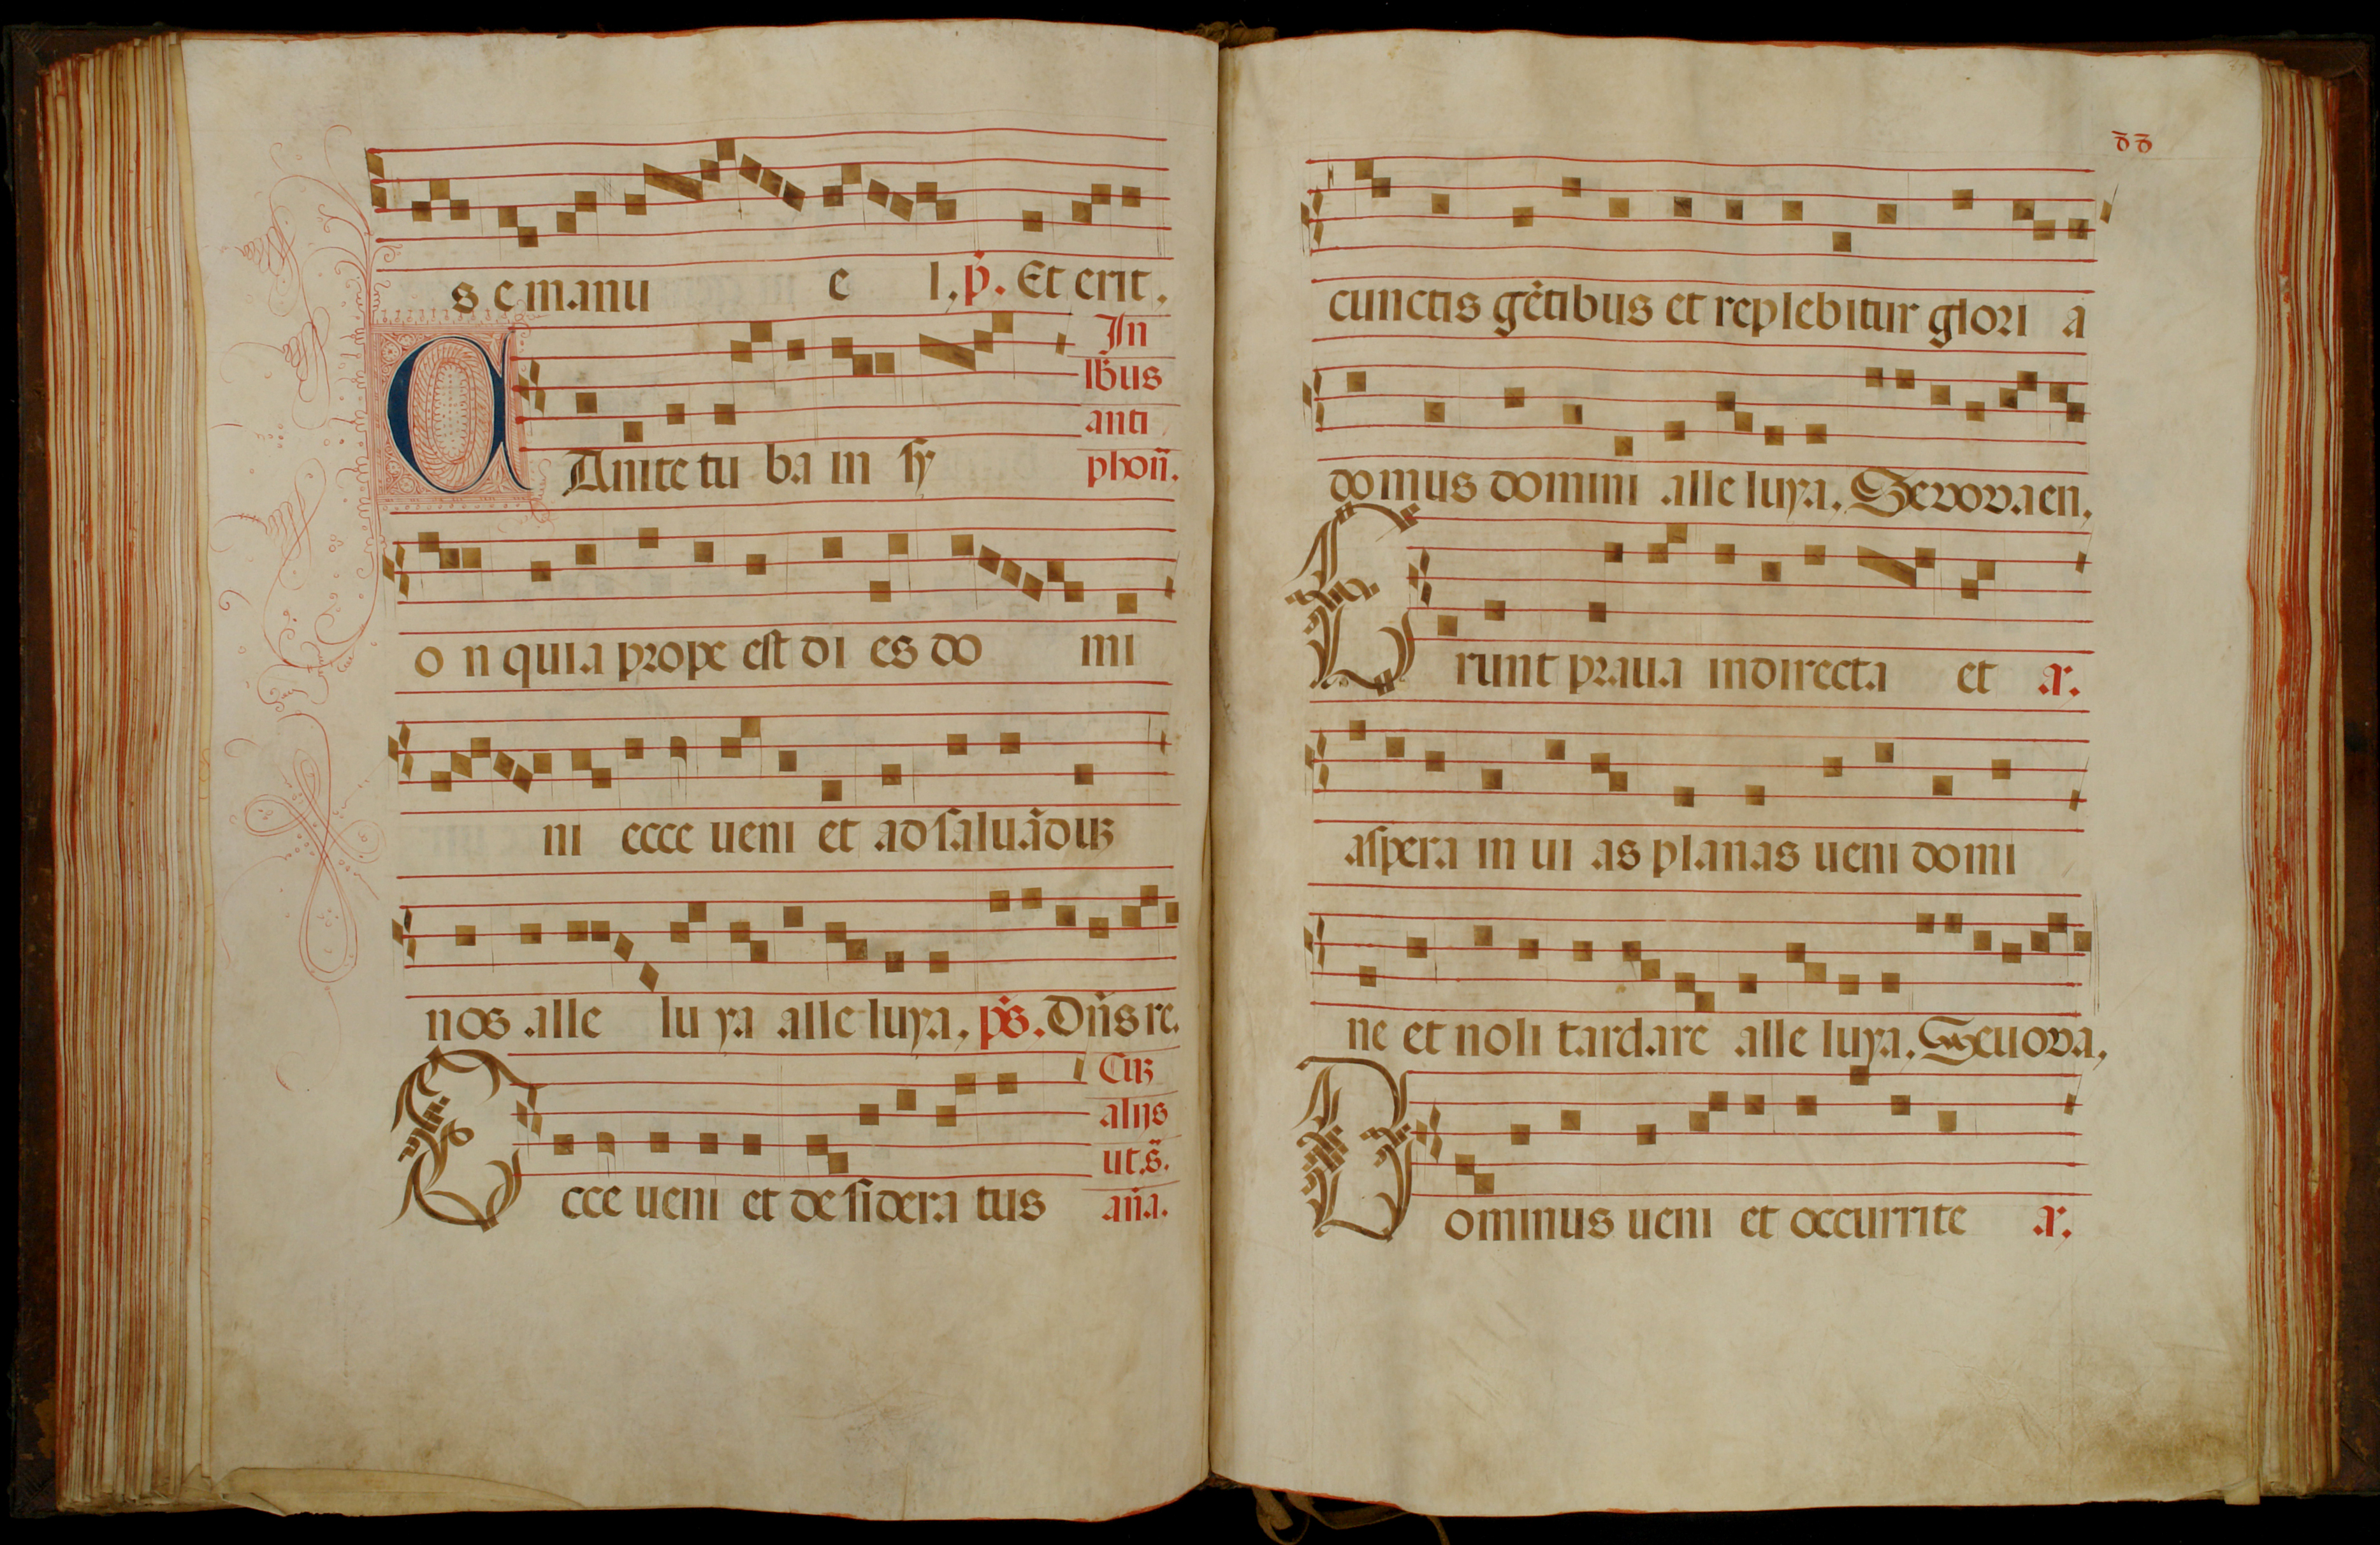 s e manu e l, p̄. Et erit.
In
lb̄us
anti
phon̄.
CAnite tu ba in sy
o n quia prope est di es do mi
ni ecce ueni et ad saluāduꝫ
nos alle lu ya alle luya, ps̄. Dn̄s re.
Cuꝫ
alijs
ut.s̄.
Ecce ueni et de sidera tus
an̄a.
cunctis gētibus et replebitur glori a
domus domini alle luya. Seuouaen,
Erunt praua indirecta et a.
aspera in ui as planas ueni domi
ne et noli tardare alle luya. Seuoua,
Dominus ueni et occurrite a.